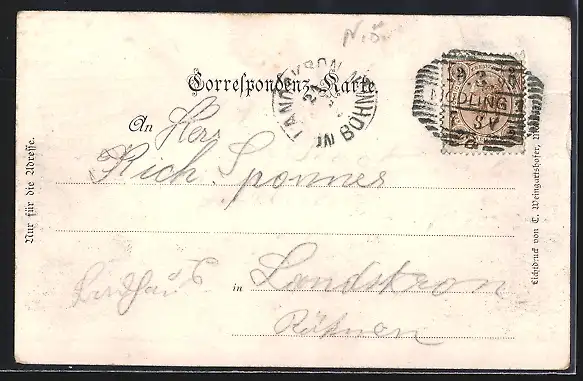 Correspondenz-Karte.
LANDSKRON IN BÖHMEN
MÖDLING
An Herr
Rich. Sponner
in Landskron
Böhmen
Nur für die Adresse.
Lichtdruck von C. Weingartshofer,